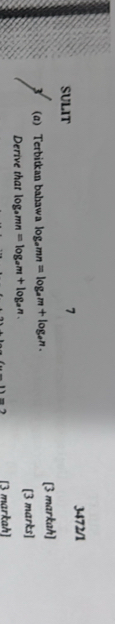 SULIT 7 3472/1
3 (a) Terbitkan bahawa logₐmn = logₐm + logₐn. [3 markah]
Derive that logₐmn = logₐm + logₐn. [3 marks]
[3 markah]